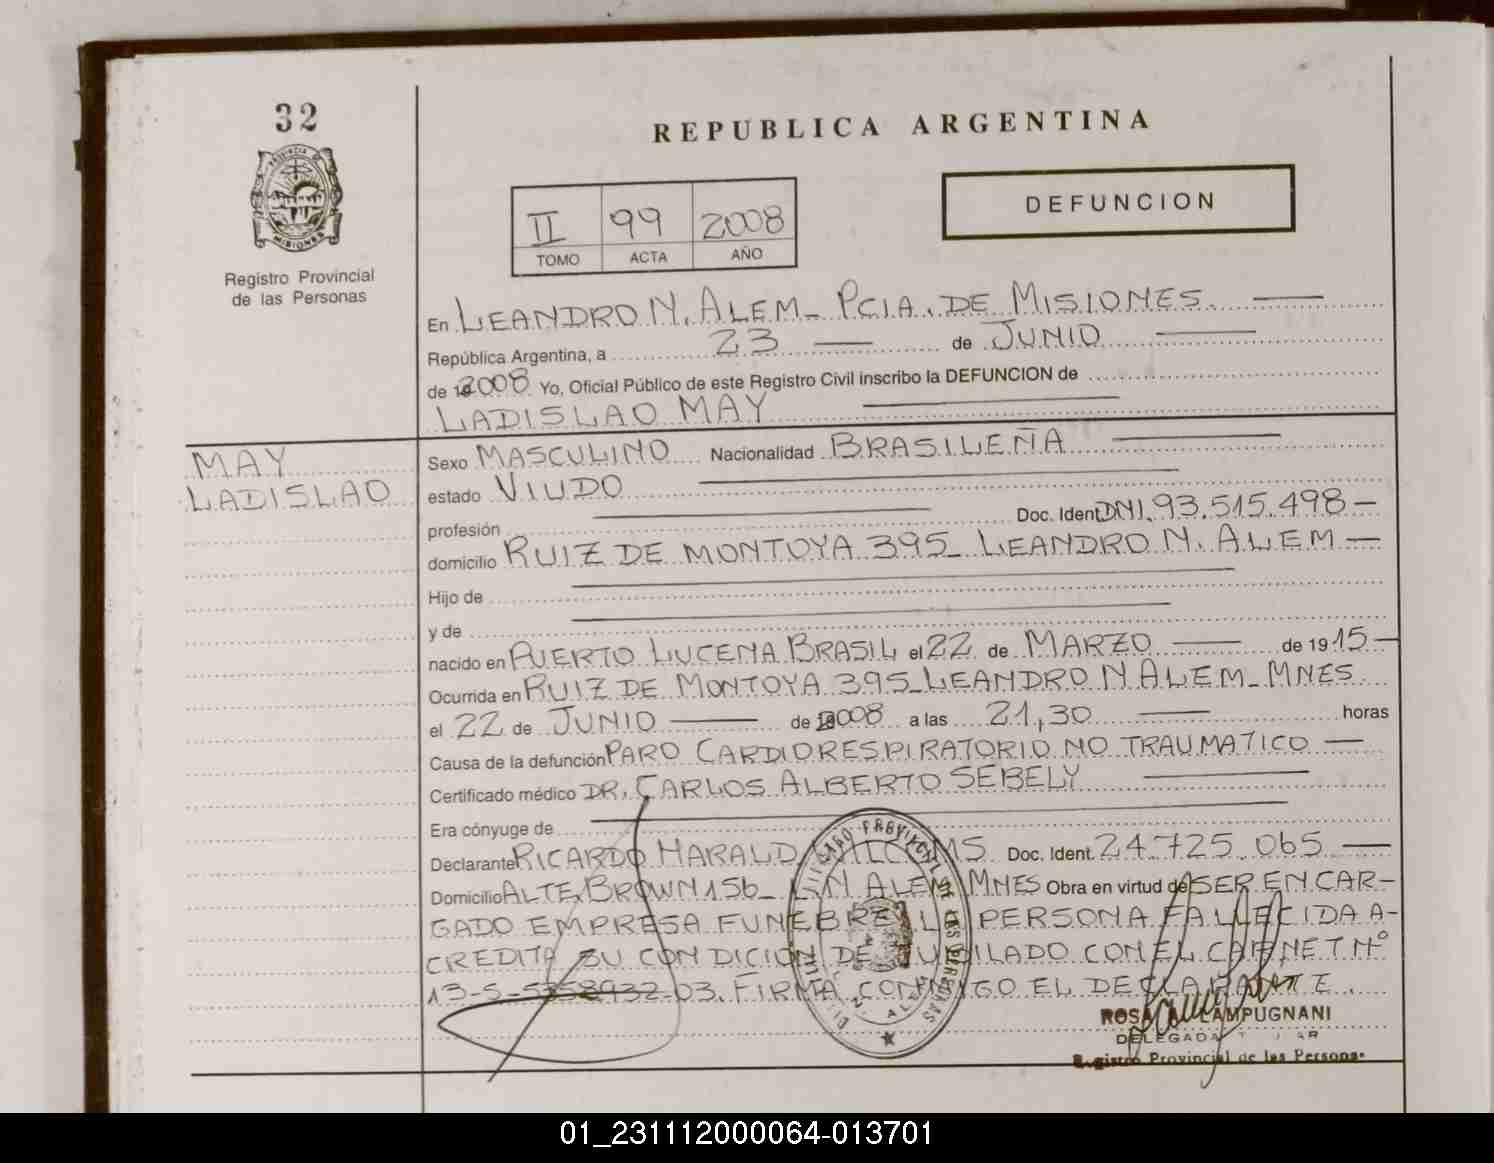 32
REPUBLICA ARGENTINA
PROVINCIA D MISIONES
Registro Provincial
de las Personas
II 99 2008
TOMO ACTA AÑO
DEFUNCION
En LEANDRO N. ALEM - PCIA. DE MISIONES.
República Argentina, a 23 de JUNIO
de 2008 Yo, Oficial Público de este Registro Civil inscribo la DEFUNCION de
LADISLAO MAY
MAY
LADISLAO
Sexo MASCULINO Nacionalidad BRASILEÑA
estado VIUDO
profesión Doc. Ident. DNI. 93.515.498-
domicilio RUIZ DE MONTOYA 395 - LEANDRO N. ALEM -
Hijo de
y de
nacido en PUERTO LUCENA BRASIL el 22 de MARZO de 1915-
Ocurrida en RUIZ DE MONTOYA 395 - LEANDRO N ALEM - MNES
el 22 de JUNIO de 2008 a las 21,30 horas
Causa de la defunción PARO CARDIORESPIRATORIO NO TRAUMATICO -
Certificado médico DR. CARLOS ALBERTO SEBELY
Era cónyuge de
Declarante RICARDO HARALD Doc. Ident. 24.725.065
Domicilio ALTE. BROWN 156 - L.N. ALEM MNES Obra en virtud de SER ENCAR-
GADO EMPRESA FUNEBRE LA PERSONA FALLECIDA A-
CREDITA SU CONDICION DE JUBILADO CON EL CARNET Nº
13-5-5358932-03. FIRMA CONMIGO EL DECLARANTE.
ROSA LAMPUGNANI
DELEGADA
Registro Provincial de las Personas
01_231112000064-013701